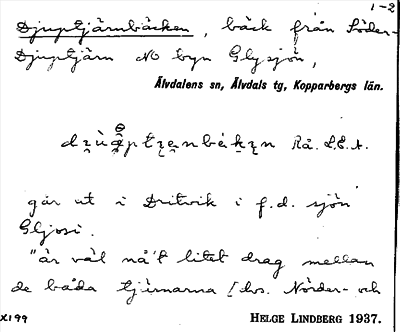 1-2
Djuptjärnbäcken, bäck från Söder-
Djuptjärn NO byn Glysjön,
Älvdalens sn, Älvdals tg, Kopparbergs län.
Rå. L.E.A.
går ut i Dritvik i f.d. sjön
Glysi.
"är väl nå't litet drag mellan
de båda tjärnarna [dvs. Norder- och
X199
HELGE LINDBERG 1937.